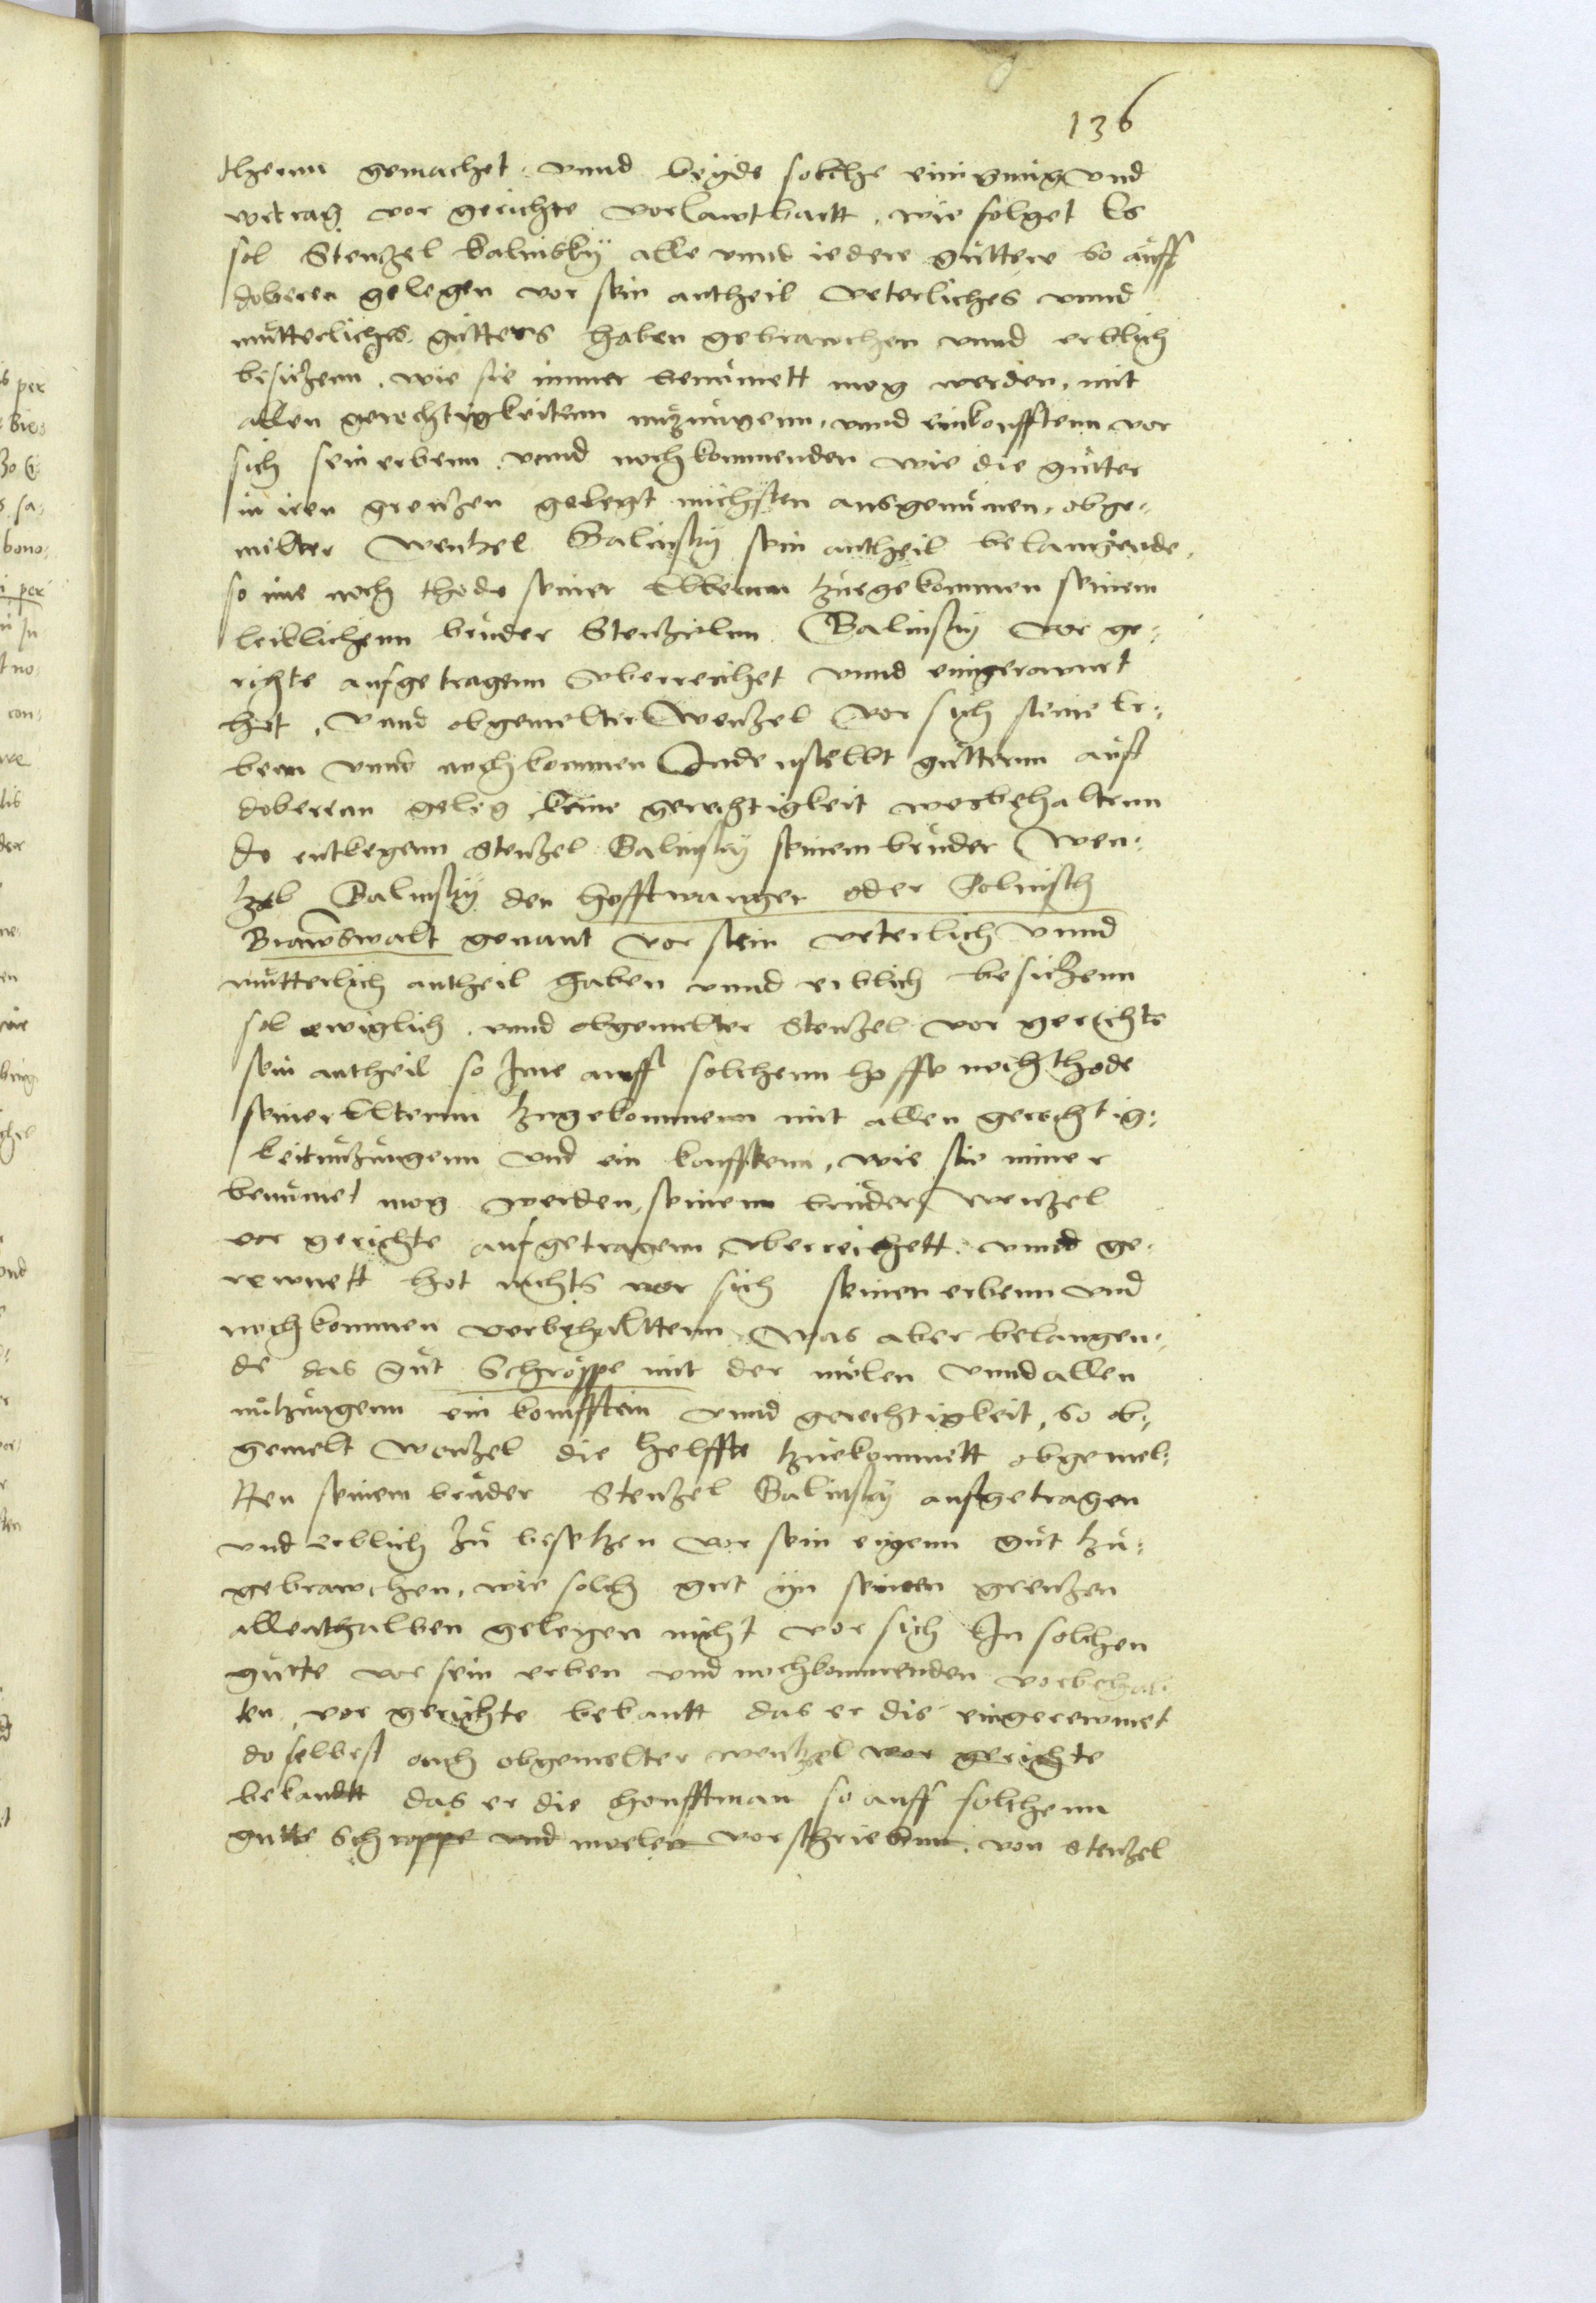 136
thenn gemachet vnnd beyde solche einigung vnd
vertrag vor gerichte vorlawtbartt, wie folget Es
sol Stenzel Balinsky alle vnnd iedere guttere so auff
doberen gelegen vor sein antheil veterliches vnnd
mutterliches gutters haben gebrawchen vnnd erblich
besiczenn, wie sie immer benumett mog werden, mit
allen gerechtigkeitenn nuzungenn, vnnd einkonfftenn vor
sich sein erbenn vnnd nochkommenden wie die gutter
in iren grenzen gelegt nichsten ausgenumen, obge-
melter Wentzel Balinsky sein antheil belangende,
so ime noch thode seiner Elternn zugekommen seinem
leiblichenn bruder Stenzelnn Balinsky vor ge-
richte aufgetragenn vberreichet vnnd eingerawmt
hot, vnnd obgemelter Wenzel vor sich seine Er-
benn vnnd nochkommen In den stellt guttern auf
doberenn geleg keine gerechtigkeit vorbehaltenn
do entkegenn Stenzel Balinsky seinem bruder Wen-
zel Balinsky den hofftwanger oder Polnisch
Brawnswalt genant vor sein veterlich vnnd
mutterlich antheil haben vnnd erblich besiczenn
sol ewiglich, vnnd obgemelter Stenzel vor gerichte
sein antheil so Ime auff solchenn hoffe noch thode
seiner Elternn zugekommenn mit allen gerechtig-
keit nuzungenn vnd ein konfftenn, wie sie immer
benumet mog werden, seinem bruder Wenzel
vor gerichte aufgetragenn, vberreichett, vnnd ge-
rewmett hot nichts vor sich seinen erbenn vnd
nochkommen vorbehalttenn Was aber belangen-
de das gut Schroppe mit der mölen vnnd allen
nutzungenn ein konfftein vnnd gerechtigkeit, so ob-
gemelt Wenzel die helffte zukommett obgemel-
tten seinem bruder Stenzel Balinsky aufgetragen
vnd erblich zu besetzen vor sein eigenn gut zu-
gebrawchen, wie solch gut yn seinen grenzen
allenthalben gelegen nicht vor sich In solchen
gutte vor sein erben vnd nochkommenden vorbehal-
ten, vor gerichte bekantt das er die eingerewmet
doselbest auch obgemelter Wentzel vor gerichte
bekandtt das er die honfftman so auff solchenn
gutte Schroppe vnd moelen vorschriebenn, von Stenzel